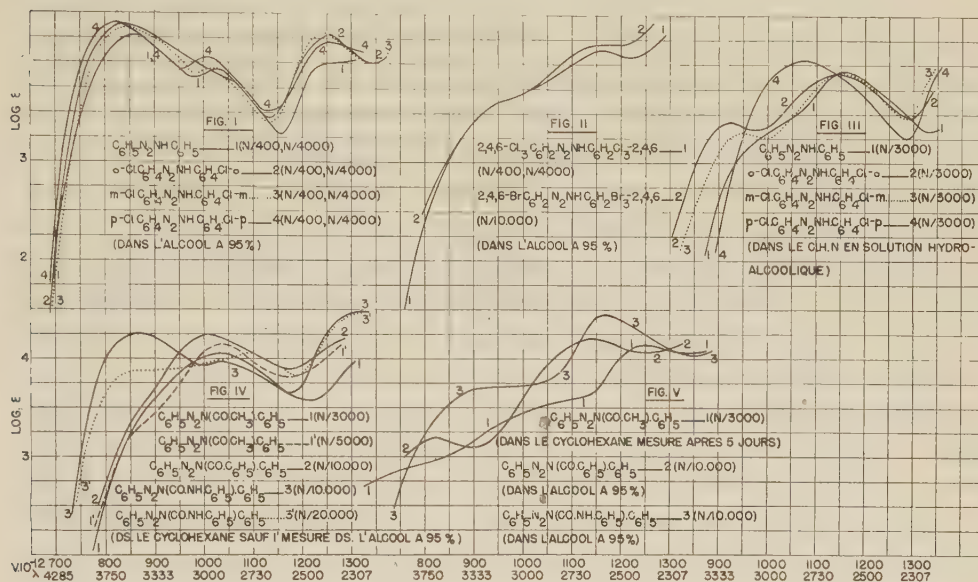 LOG ε
3
2
FIG. I
C6H5N2NHC6H5 1(N/400,N/4000)
o-ClC6H4N2NH.C6H4Cl-o 2(N/400,N/4000)
m-ClC6H4N2NH.C6H4Cl-m 3(N/400,N/4000)
p-ClC6H4N2NH.C6H4Cl-p 4(N/400,N/4000)
(DANS L'ALCOOL A 95%)
FIG. II
2,4,6-Cl3C6H2N2NH.C6H2Cl3-2,4,6 1
(N/400,N/4000)
2,4,6-BrC6H2N2NH.C6H2Br3-2,4,6 2
(N/10.000)
(DANS L'ALCOOL A 95%)
FIG. III
C6H5N2NH.C6H5 1(N/3000)
o-Cl.C6H4N2NH.C6H4Cl-o 2(N/3000)
m-ClC6H4N2NH.C6H4Cl-m 3(N/3000)
p-ClC6H4N2NH.C6H4Cl-p 4(N/3000)
(DANS LE C.H.N EN SOLUTION HYDRO-
ALCOOLIQUE)
LOG ε
4
3
FIG. IV
C6H5N2N(CO.CH3).C6H5 1(N/3000)
C6H5N2N(CO.CH3)C6H5 1'(N/5000)
C6H5N2N(CO.C6H5).C6H5 2(N/10.000)
C6H5N2N(CO.NHC6H5).C6H5 3(N/10.000)
C6H5N2N(CO.NH.C6H5)C6H5 3'(N/20.000)
(DS. LE CYCLOHEXANE SAUF I' MESURÉ DS. L'ALCOOL A 95%)
FIG. V
C6H5N2N(CO.CH3).C6H5 1(N/3000)
(DANS LE CYCLOHEXANE MESURE APRES 5 JOURS)
C6H5N2N(CO.C6H5).C6H5 2(N/10.000)
(DANS L'ALCOOL A 95%)
C6H5N2N(CO.NH.C6H5).C6H5 3(N/10.000)
(DANS L'ALCOOL A 95%)
V.10-12 700 800 900 1000 1100 1200 1300 800 900 1000 1100 1200 1300 900 1000 1100 1200 1300
λ 4285 3750 3333 3000 2730 2500 2307 3750 3333 3000 2730 2500 2307 3333 3000 2730 2500 2307